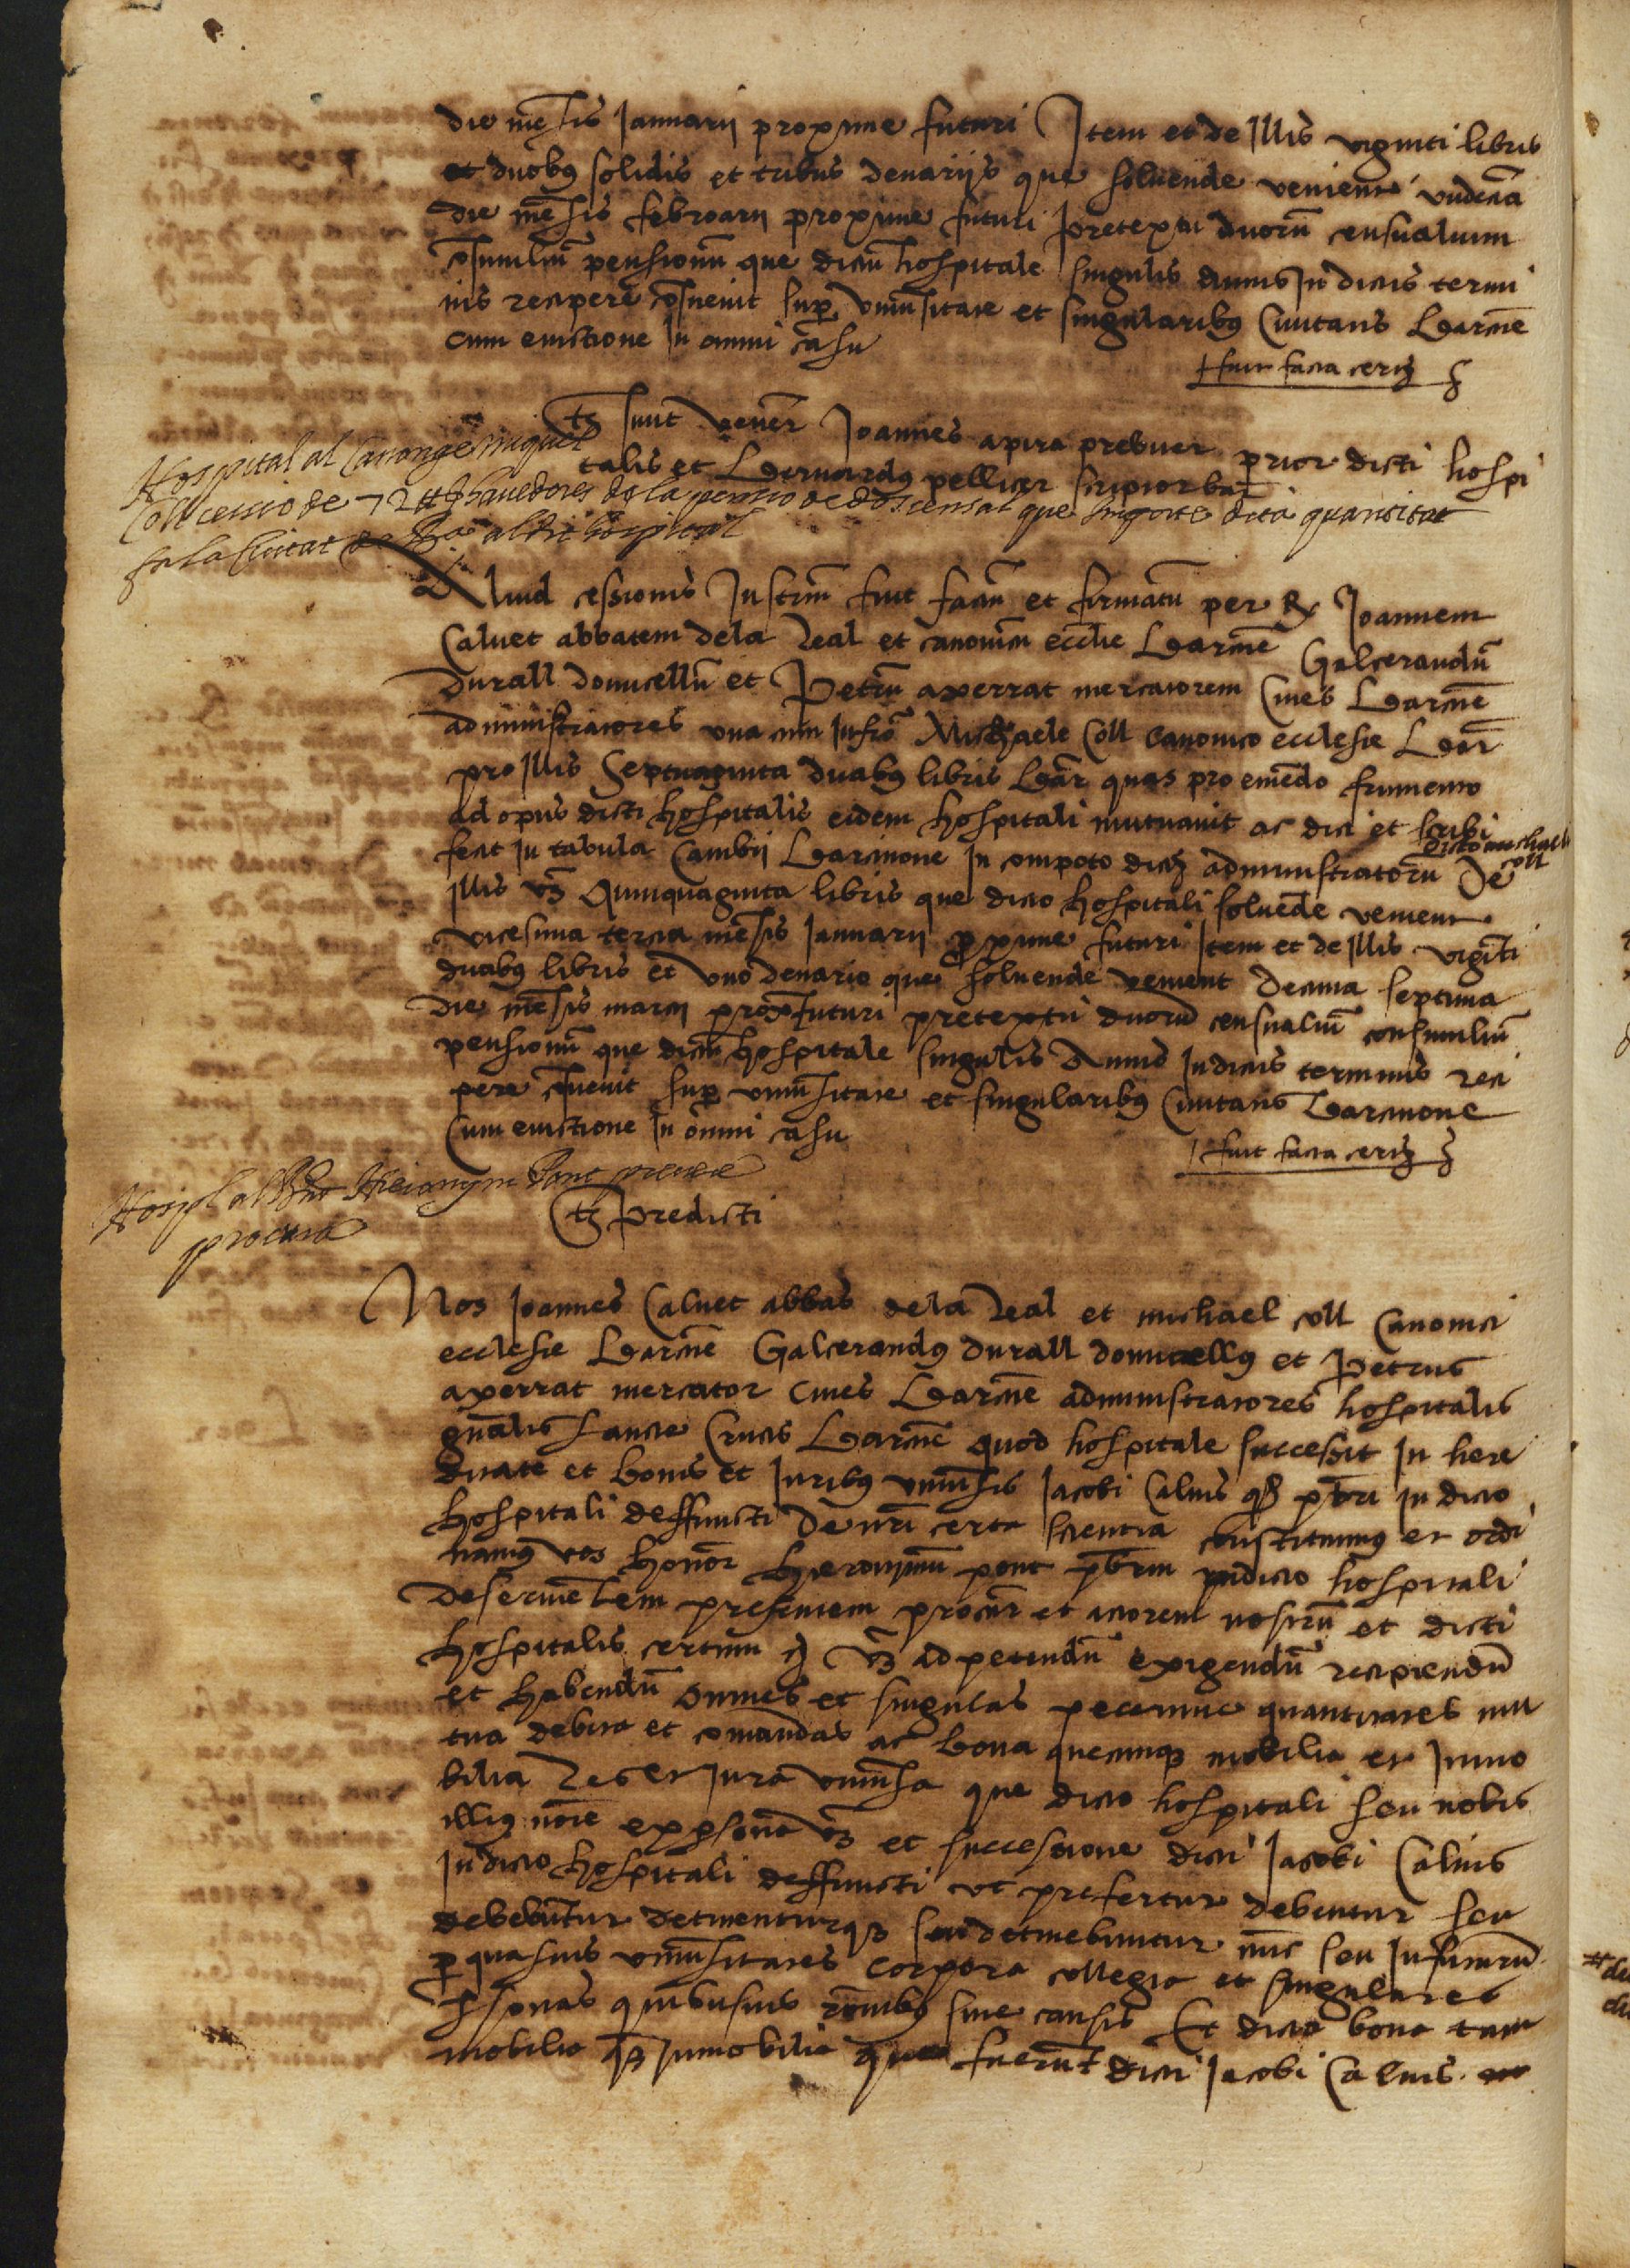 die mēsis Januarii proxime futuri Item et de Illis viginti libris
et duobus solidis et tribus denariis que soluende venient vndena
die mēsis febroarii proxime futuri pretextu duorū censualium
cōsimiliū pensionū que dictū hospitale singulis Annis In dictis termi
nis recipere cōsueuit sup vniuersitate et singularibus Ciuitatis Barcnē
cum euictione In omni casu
fuit facta certij
ts sunt vener Joannes apira prebiter prior dicti hospi
talis et Bernardus pellicer scriptor bar
Hospital al Canonge miquel
Coll cessio de 72 ll hauedores de la pensio de dos censal que Importe dita quantitat
sobre la Ciutat de Bar al dit hospital
Aliud cessionis Instrm fuit factū et firmatū per R Joannem
Caluet abbatem dela Real et canonicū ecclie Barcnē Galcerandū
Durall domicellū et Petrū axerrat mercatorem Ciues Barcnē
administratores vna cum Infro Michaele Coll Canonico ecclesie Bar
pro Illis Septuaginta duabus libris Bar quas pro emēdo frumento
ad opus dicti hospitalis eidem hospitali mutuauit ac dici et scribi
fecit In tabula Cambii Barcinone In compoto dictj administratorū De
dicto michaeli
coll
Illis vz Quinquaginta libris que dicto hospitali soluēde venient
vicesima tercia mēsis Januarii proxime futuri Item et de Illis viginti
duabus libris et vno denario que soluende venient Decima septima
die mēsis marcii prox futuri pretextu duorū censualiū consimiliū
pensionū que dictū hospitale singulis Annis In dictis terminis reci
pere cōsueuit sup vniuersitate et singularibus Ciuitatis Barcinone
Cum euictione In omni casu
fuit facta certij
ts Predicti
Hospl al Hieronym Pont preuere
procura
Nos Joannes Caluet abbas dela Real et michael coll Canonici
ecclesie Barcnē Galcerandus Durall domicellus et Petrus
axerrat mercator Ciues Barcnē administratores hospitalis
gnālis Sancte Crucis Barcnē quod hospitale successit In here
ditate et bonis et Juribus vniuersis Jacobi Caluis qº prbri In dicto
hospitali deffuncti De nrā certa scientia constituimus et ordi
namus vos Honor Hieronymū pont prbrm In dicto hospitali
deseruiētem presentem procur et actorem nostrū et dicti
hospitalis certum vz ad petendū exigendū recipiendū
et habendū omnes et singulas peccunie quantitates mu
tua debita et comandas ac bona quecumqȝ mobilia et Inmo
bilia Res et Jura vniuersa que dicto hospitali seu nobis
illius noīe ex persona vz et successione dicti Jacobi Caluis
In dicto hospitali deffuncti vt prefertur debentur seu
debebuntur detinenturqȝ seu detinebuntur nūc seu In futurū
per quasuis vniuersitates corpora collegia et singulares
personas quibusuis rōnibus siue causis Et dicta bona tam
mobilia qȝ Inmobilia que fuerunt dicti Jacobi Caluis